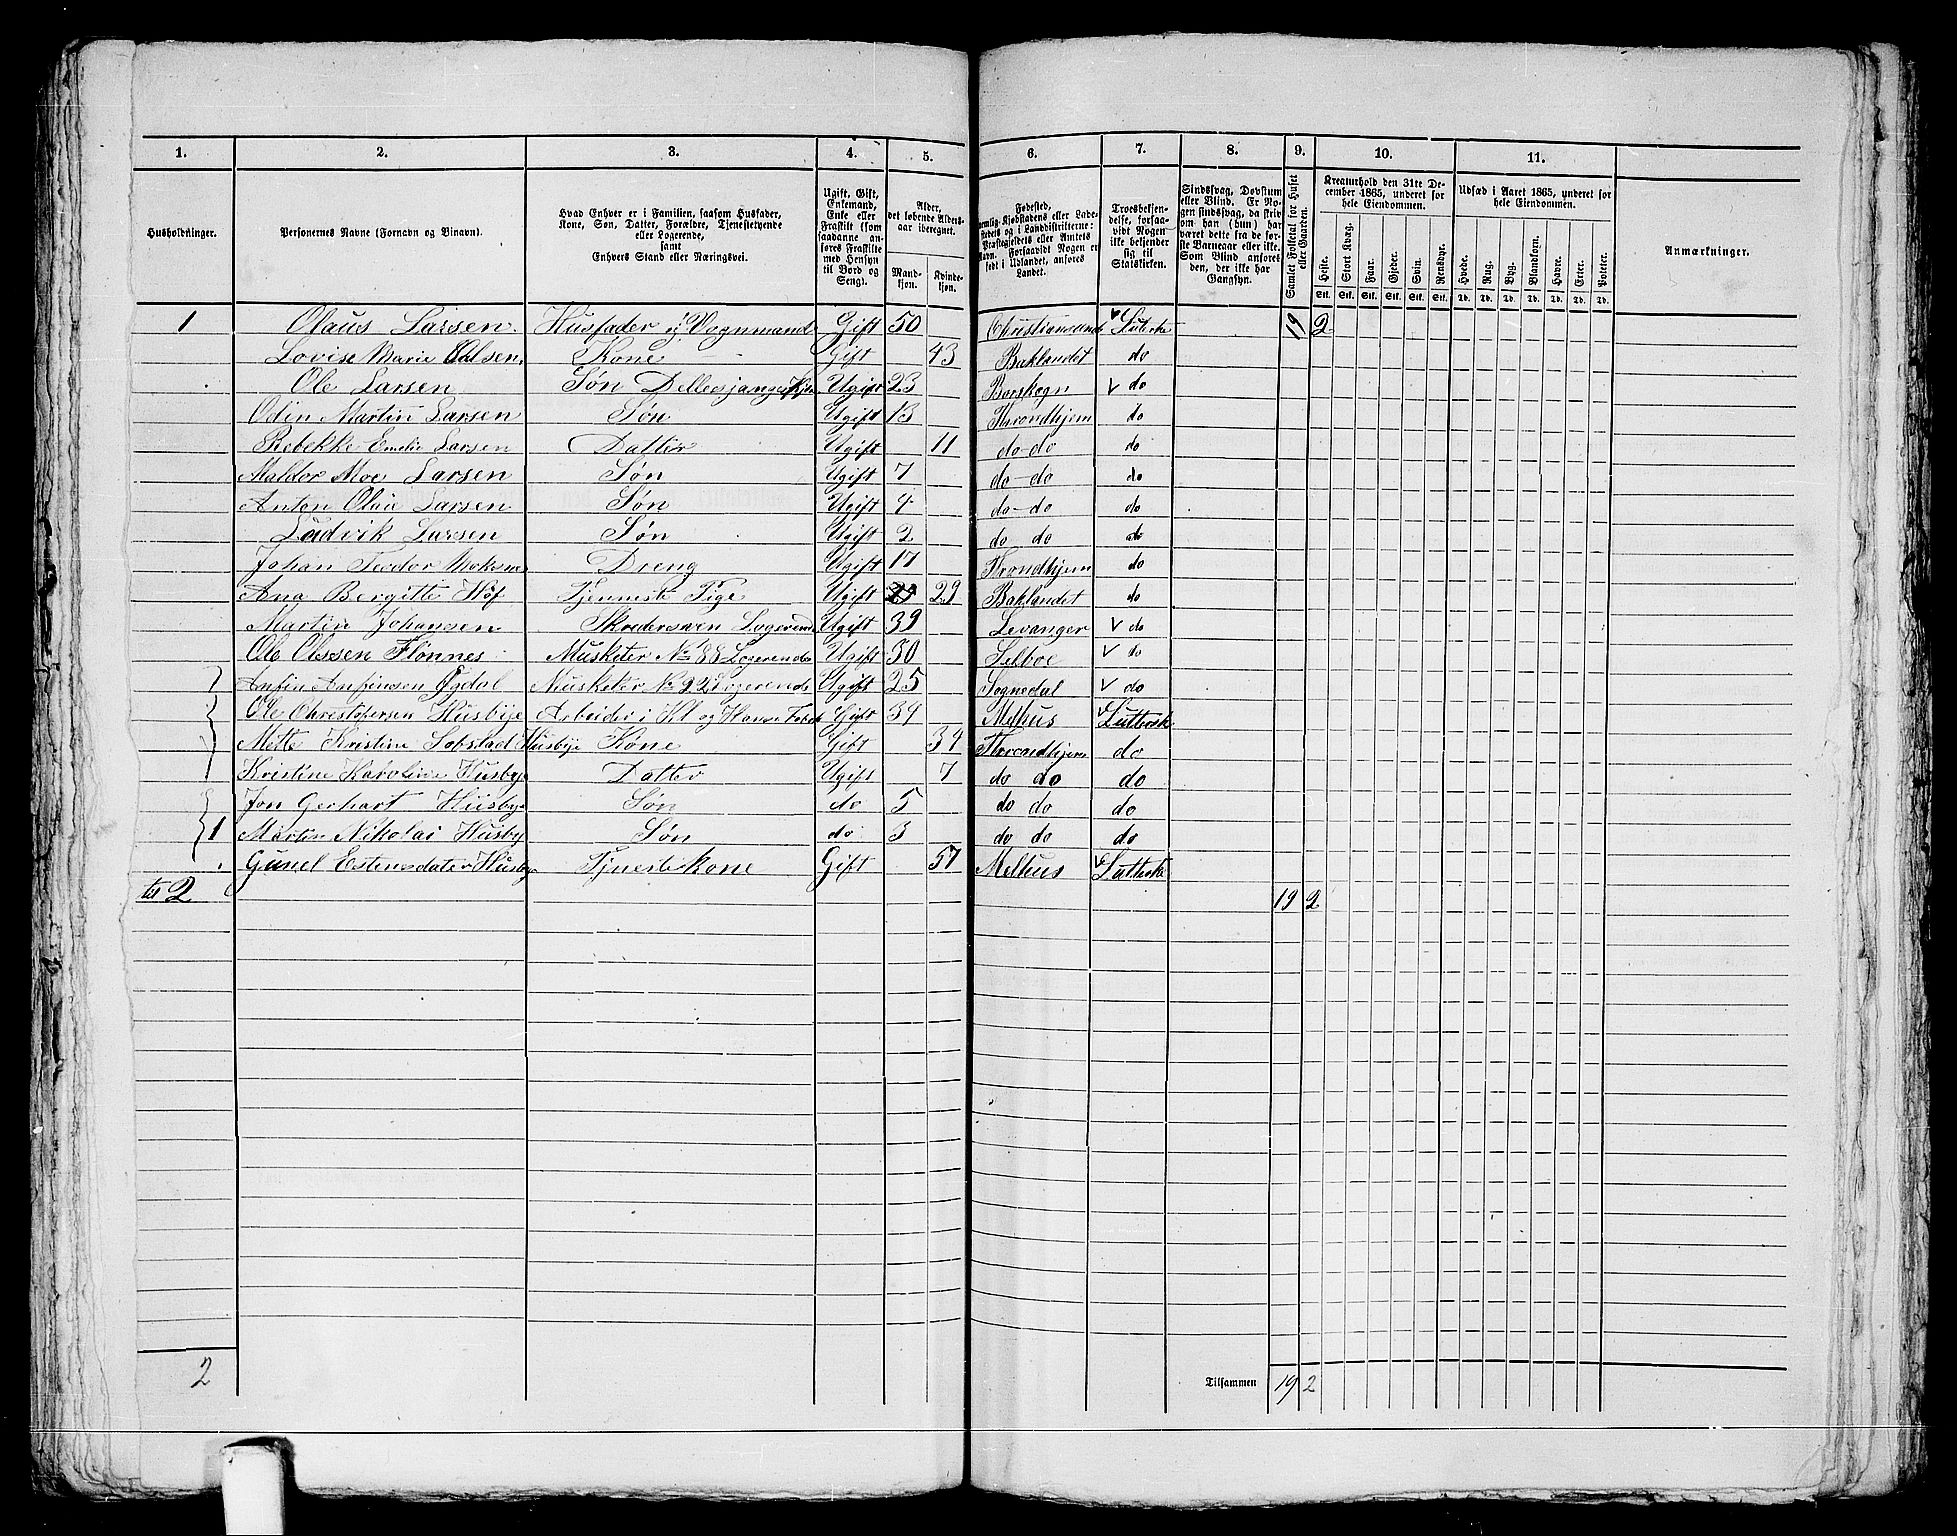 1. 2. 3. 4. 5. 6. 7. 8. 9. 10. 11.
Husholdninger.
Personernes Navne (Fornavn og Tilnavn).
Hvad Enhver er i Familien, saasom Husfader, Kone, Søn, Datter, Forældre, Tjenestetyende eller Logerende, samt Enhvers Stand eller Næringsvei.
Ugift, Gift, Enkemand, Enke eller Fraskilt (som saadanne anføres Fraskilte med Hensyn til Bord og Seng).
Alder, det løbende Aldersaar iberegnet.
Mandkjøn. Kvindekjøn.
Fødested, nemlig Kjøbstadens eller Ladestedets og i Landdistrikterne: Præstegjeldets eller Amtets Navn. Forsaavidt Nogen er født i Udlandet, anføres Landet.
Troesbekjendelse, forsaavidt Nogen ikke bekjender sig til Statskirken.
Sindssvag, Døvstum eller Blind. Er Nogen sindssvag, da skrives om han (hun) har været dette fra de første Barneaar eller ikke. Som Blind anføres den, der ikke har Gangsyn.
Samlet Folketal for Huset eller Gaarden.
Kreaturhold den 31te December 1865, underet for hele Eiendommen.
Heste. Stort Kvæg. Faar. Gjeder. Svin. Rensdyr.
Stk. Stk. Stk. Stk. Stk. Stk.
Udsæd i Aaret 1865, underet for hele Eiendommen.
Hvede. Rug. Byg. Blandkorn. Havre. Erter. Poteter.
Td. Td. Td. Td. Td. Td. Td.
Anmærkninger.
1 Olaus Larsen. Husfader Vognmand Gift 50 Christiansund Luterske 19 2
Lovise Marie Olsen Kone Gift 43 Baklandet do
Ole Larsen Søn Ugift 23 Borskogn do
Odin Martin Larsen Søn Ugift 13 Throndhjem do
Rebekke Emelie Larsen Datter Ugift 11 do-do do
Maldor Moe Larsen Søn Ugift 7 do-do do
Anton Olaie Larsen Søn Ugift 4 do-do do
Ludvik Larsen Søn Ugift 2 do do do
Johan Teodor Moksnes Dreng Ugift 17 Throndhjem do
Ana Bergitte Hof Tjenneste Pige Ugift 29 Baklandet do
Martin Johansen Skredersven Logerend Ugift 39 Levanger do
Ole Olssen Flønnes Musketer No 88 Logerende Ugift 30 Selboe do
Anfin Anfinsen Øgdal Musketer No 92 Logerende Ugift 25 Sognedal do
Ole Christofersen Husbye Arbeider i Kl og Hanse Fabr Gift 34 Melhus Luttersk
Mette Kristine Lofstad Husbye Kone Gift 34 Throndhjem do
Kristine Karoline Husbye Datter Ugift 7 do do do
Jon Gerhart Husbye Søn do 5 do do do
1 Martin Nikolai Husby Søn do 3 do do do
Gunel Estensdater Husbye Tjenestekone Gift 57 Melhus Lutterske
2 19 2
2 Tilsammen 19 2